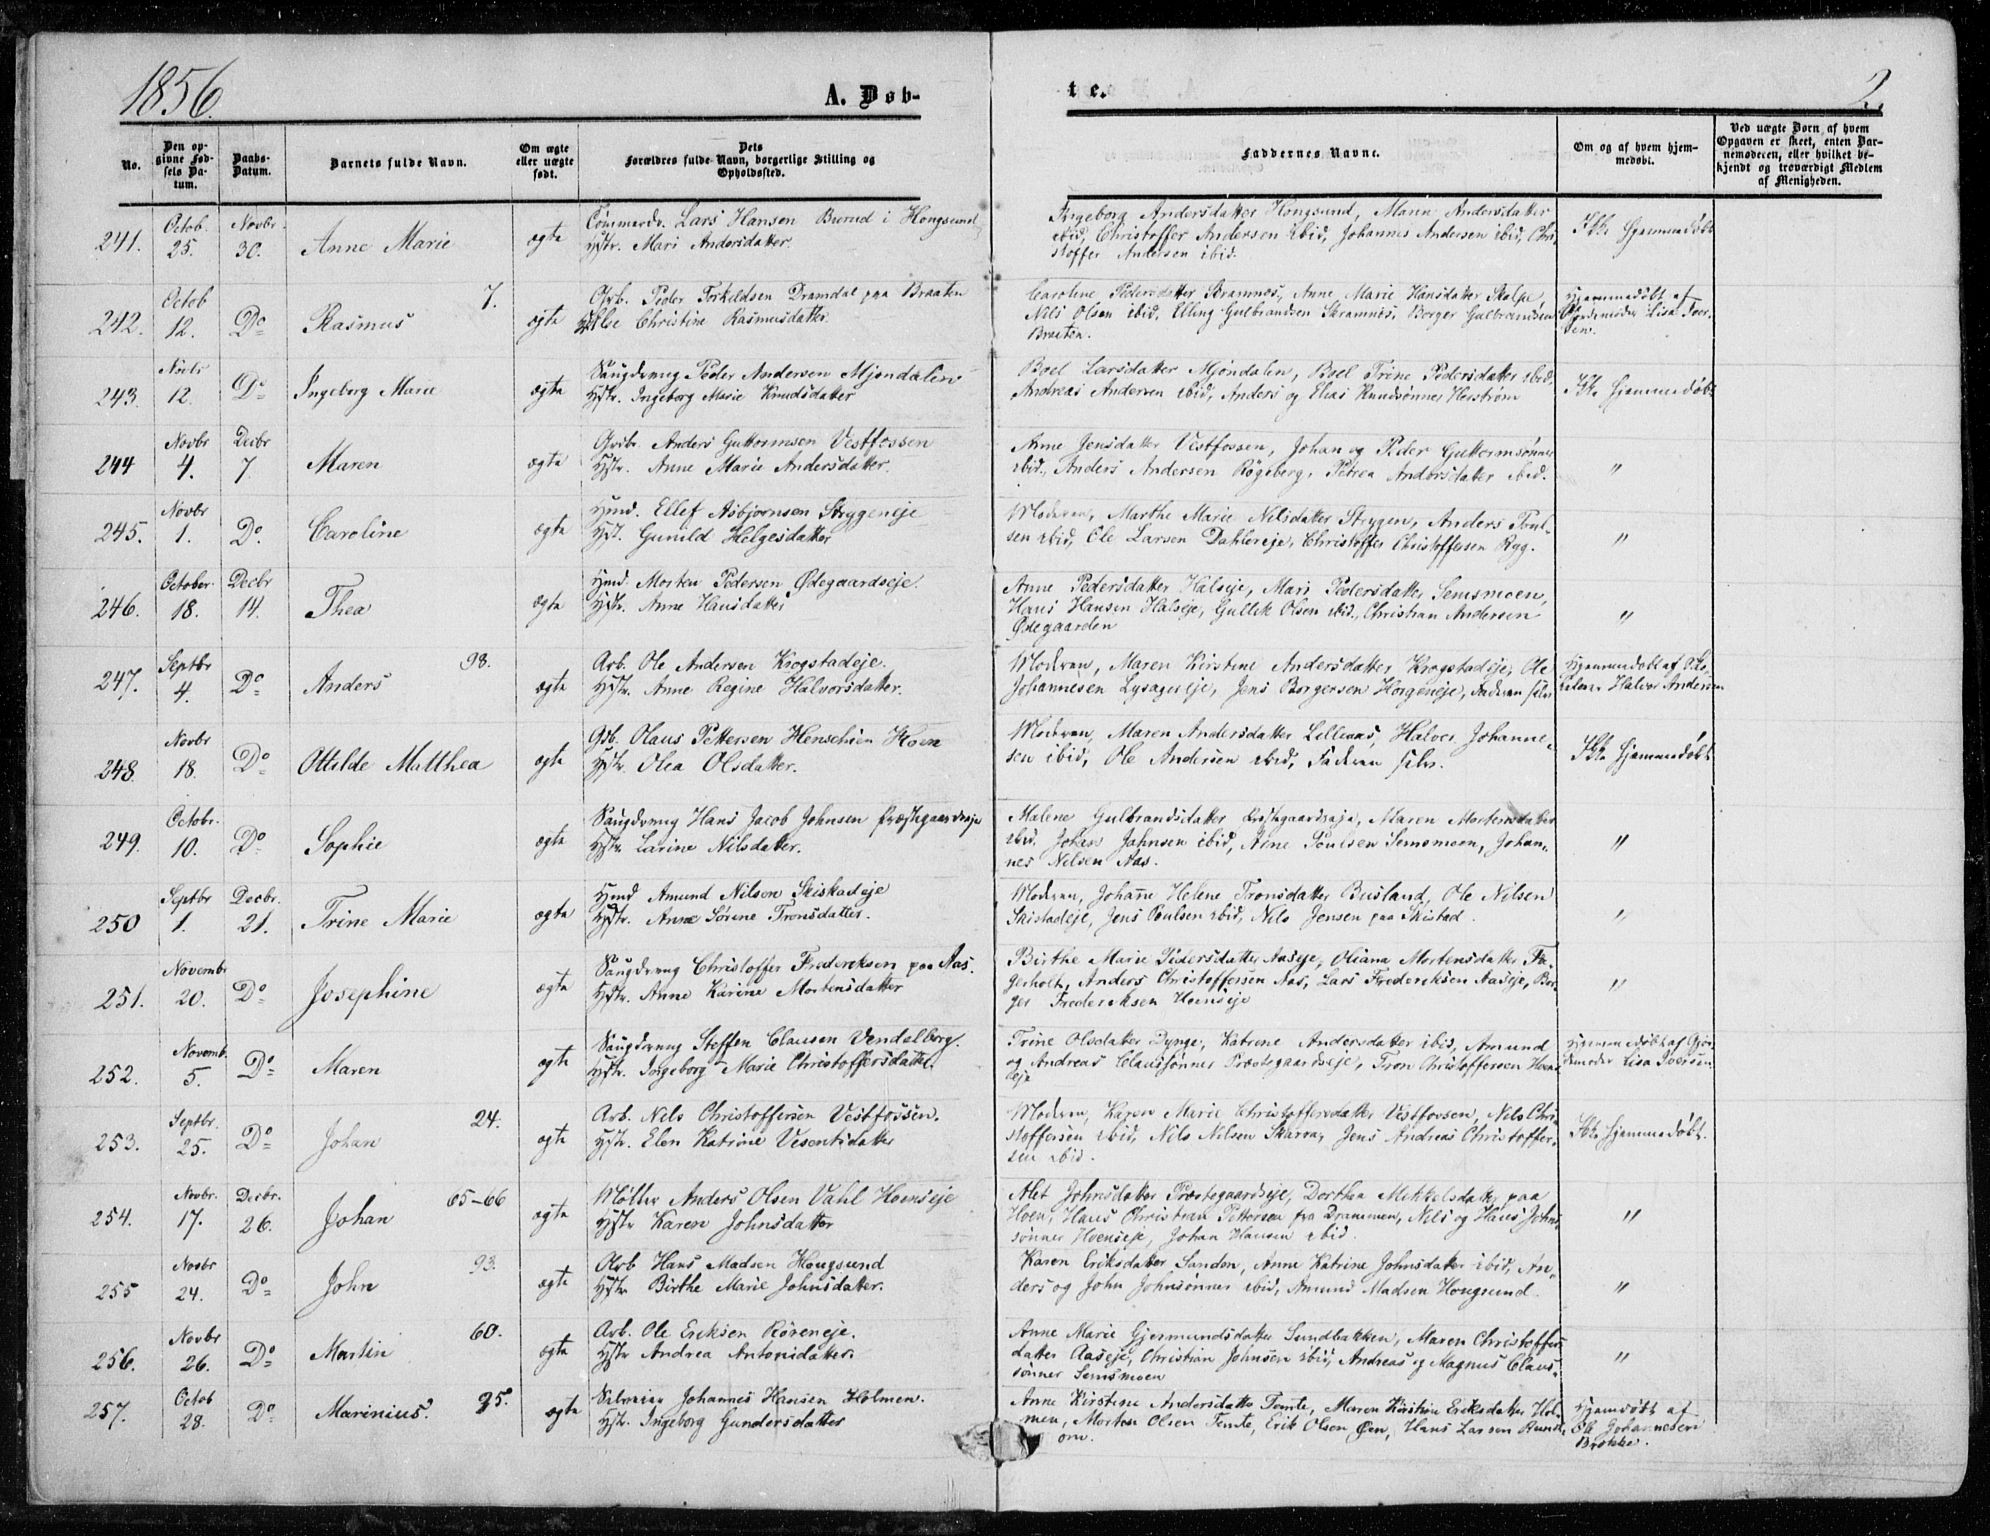 1856.
A. Døb-
te.
2.
No.
Den op-
givne Fød-
sels Da-
tum.
Daabs-
Datum.
Barnets fulde Navn.
Om ægte
eller uægte
født.
Dets
Forældres fulde Navn, borgerlige Stilling og
Opholdssted.
Faddernes Navne.
Om og af hvem hjem-
medøbt.
Ved uægte Børn, af hvem
Opgaven er skeet, enten Bar-
nemoderen, eller hvilket be-
kjendt og troværdigt Medlem
af Menigheden.
241. Octob. 25. Novbr. 30. Anne Marie ægte
Tømmerdr. Lars Hansen Burud i Hongsund
Hstr. Mari Andersdatter.
Ingeborg Andersdatter Hongsund, Maren Andersdatter
ibid, Christoffer Andersen ibid, Johannes Andersen ibid, Chri-
stoffer Andersen ibid.
Ikke hjemmedøbt
242. Octob 12. Do Rasmus 7. ægte
Arb. Peder Torkildsen Dramdal paa Braaten
Else Christine Rasmusdatter
Caroline Pedersdatter Skramnes, Anne Marie Hansdatter Stolpe,
Nils Olsen ibid, Elling Gulbrandsen Skramnes, Borger Gulbrandsen
Braaten.
Hjemmedøbt af
Gjordemoder Lisa Iver-
sen.
243. Novbr 12. Do Ingeborg Marie ægte
Saugdreng Peder Andersen Mjøndalen
Hstr. Ingeborg Marie Knudsdatter
Boel Larsdatter Mjøndalen, Boel Trine Pedersdatter ibid.
Andreas Andersen ibid, Anders og Elias Knudsønner Herstrøm
Ikke hjemmedøbt
244 Novbr 4. Decbr 7. Maren ægte
Grbr. Anders Guttormsen Vestfossen
Hstr. Anne Marie Andersdatter.
Anne Jensdatter Vestfossen, Johan og Peder Guttormsønner
ibid., Anders Andersen Røgeberg, Petrea Andersdatter ibid.
"
245. Novbr 1. Do. Caroline ægte
Hmd. Ellef Asbjørnsen Strygeneje
Hst. Gunild Helgesdatter
Moderen, Marthe Marie Nilsdatter Strygen, Anders Poul-
sen ibid, Ole Larsen Dahlereje, Christoffer Christoffersen Ryg.
"
246. October 18. Decbr 14. Thea ægte
Hmd. Morten Pedersen Ødegaardseje.
Hstr. Anne Hansdatter
Anne Pedersdatter Halseje, Mari Pedersdatter Semsmoen,
Hans Hansen Halseje, Gullik Olsen ibid., Christian Andersen
Ødegaarden
"
247. Septbr 4. Do Anders 98. ægte
Arb. Ole Andersen Krogstadeje.
Hstr. Anne Regine Halvorsdatter.
Moderen, Maren Kirstine Andersdatter Krogstadeje, Ole
Johannesen Lysagereje, Jens Borgersen Horgeneje, Faderen selv
Hjemmedøbt af
Halvor Andersen
248 Novbr 18. Do Ottilde Matthea ægte
Gsb. Olaus Pettersen Henschien Hoen
Hstr. Olea Olsdatter.
Moderen, Maren Andersdatter Lilleaas, Halvor Johanne-
sen ibid, Ole Andersen ibid, Faderen selv.
Ikke hjemmedøbt
249. Octobr. 10. Do Sophie ægte
Saugdreng Hans Jacob Johnsen Præstegaardseje
Hstr. Larine Nilsdatter.
Malene Gulbrandsdatter Præstegaardseje, Maren Mortensdatter
ibid. Johan Johnsen ibid, Arne Poulsen Semsmoen, Johan-
nes Nilsen Aas.
"
250 Septbr 1. Decbr. 21. Trine Marie ægte
Hmd Amund Nilsen Skistadeje
Hstr. Anne Sørine Tronsdatter.
Moderen, Johanne Helene Tronsdatter Busland, Ole Nilsen
Skistadeje, Jens Poulsen ibid, Nils Jensen paa Skistad.
"
251. Novembr 20. Do Josephine ægte
Saugdreng Christoffer Frederiksen paa Aas.
Hstr. Anne Karine Mortensdatter
Birthe Marie Pedersdatter Aaseje, Oliana Mortensdatter Fa-
gerholt, Anders Christoffersen Aas, Lars Frederiksen Aaseje, Bor-
ger Frederiksen Hoenseje
"
252. Novemb. 5. Do Maren ægte
Saugdreng Steffen Clausen Vendelborg.
Hstr. Ingeborg Marie Christoffersdatter.
Trine Olsdatter Dynge, Katrine Andersdatter ibid, Amund
og Andreas Claussønner Præstegaardseje, Tron Christoffersen Hoens-
eje
Hjemmedøbt af Gjor-
demoder Lisa Iversen
253. Septbr. 25. Do Johan 24. ægte
Arb. Nils Christoffersen Vestfossen.
Hstr. Elen Katrine Vesentsdatter
Moderen, Karen Marie Christoffersdatter Vestfossen, Nils Chri-
stoffersen ibid, Nils Nilsen Skarra, Jens Andreas Christoffer-
sen ibid.
Ikke hjemmedøbt.
254. Novbr. 17. Decbr. 26. Johan 65-66 ægte
Møller Anders Olsen Dahl Hoenseje
Hstr Karen Johnsdatter
Alet Johnsdatter Præstegaardseje, Dorthea Mikkelsdatter paa
Hoen, Hans Christian Pettersen fra Drammen, Nils og Hans Johns-
sønner Hoenseje, Johan Hansen ibid.
"
255 Novbr 24. Do John 93. ægte
Arb Hans Madsen Hougsund
Hstr Birthe Marie Johnsdatter.
Karen Eriksdatter Sanden, Anne Katrine Johnsdatter ibid, An-
ders og John Johnsønner ibid, Amund Madsen Hougsund.
"
256. Novbr 26. Do Martin 60. ægte
Arb. Ole Eriksen Røreneje.
Hstr Andrea Antonidatter.
Anne Marie Gjermundsdatter Sundbakken, Maren Christoffers-
datter Aaseje, Christian Johnsen ibid, Andreas og Magnus Claus-
sønner Semsmoen
"
257. Octob 28. Do Marinius. 95. ægte
Selveier Johannes Hansen Holmen.
Hstr. Ingeborg Gundersdatter
Anne Kirstine Andersdatter Temte, Maren Kirstine Eriksdatter Hol-
men, Morten Olsen Temte, Erik Olsen Øen, Hans Larsen Rund-
om.
Hjemdøbt af
Ole Johannesen
Brokke.